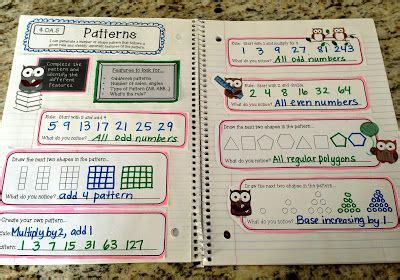 4.OA.5
Patterns
I can generate a number or shape pattern that follows a
given rule and identify apparent features of the pattern.
Complete the
pattern and
identify the
different
features.
Features to look for...
Even or Odd numbers
Type of Pattern (AB, ABB...)
What's the rule?
Rule: Start with 5 and add 4.
5 9 13 17 21 25 29
What do you notice? All odd numbers
Draw the next two shapes in the pattern...
What do you notice? add 4 pattern
Create your own pattern
Rule: Multiply by 2, add 1
Pattern: 1 3 7 15 31 63 127
Rule: Start with 1 and multiply by 3.
1 3 9 27 81 243
What do you notice? All odd numbers
Rule: Start with 2 and
2 4 8 16 32 64
What do you notice? All even numbers
Draw the next two shapes in the pattern...
What do you notice? All regular polygons
Draw the next two shapes in the pattern...
What do you notice? Base increasing by 1